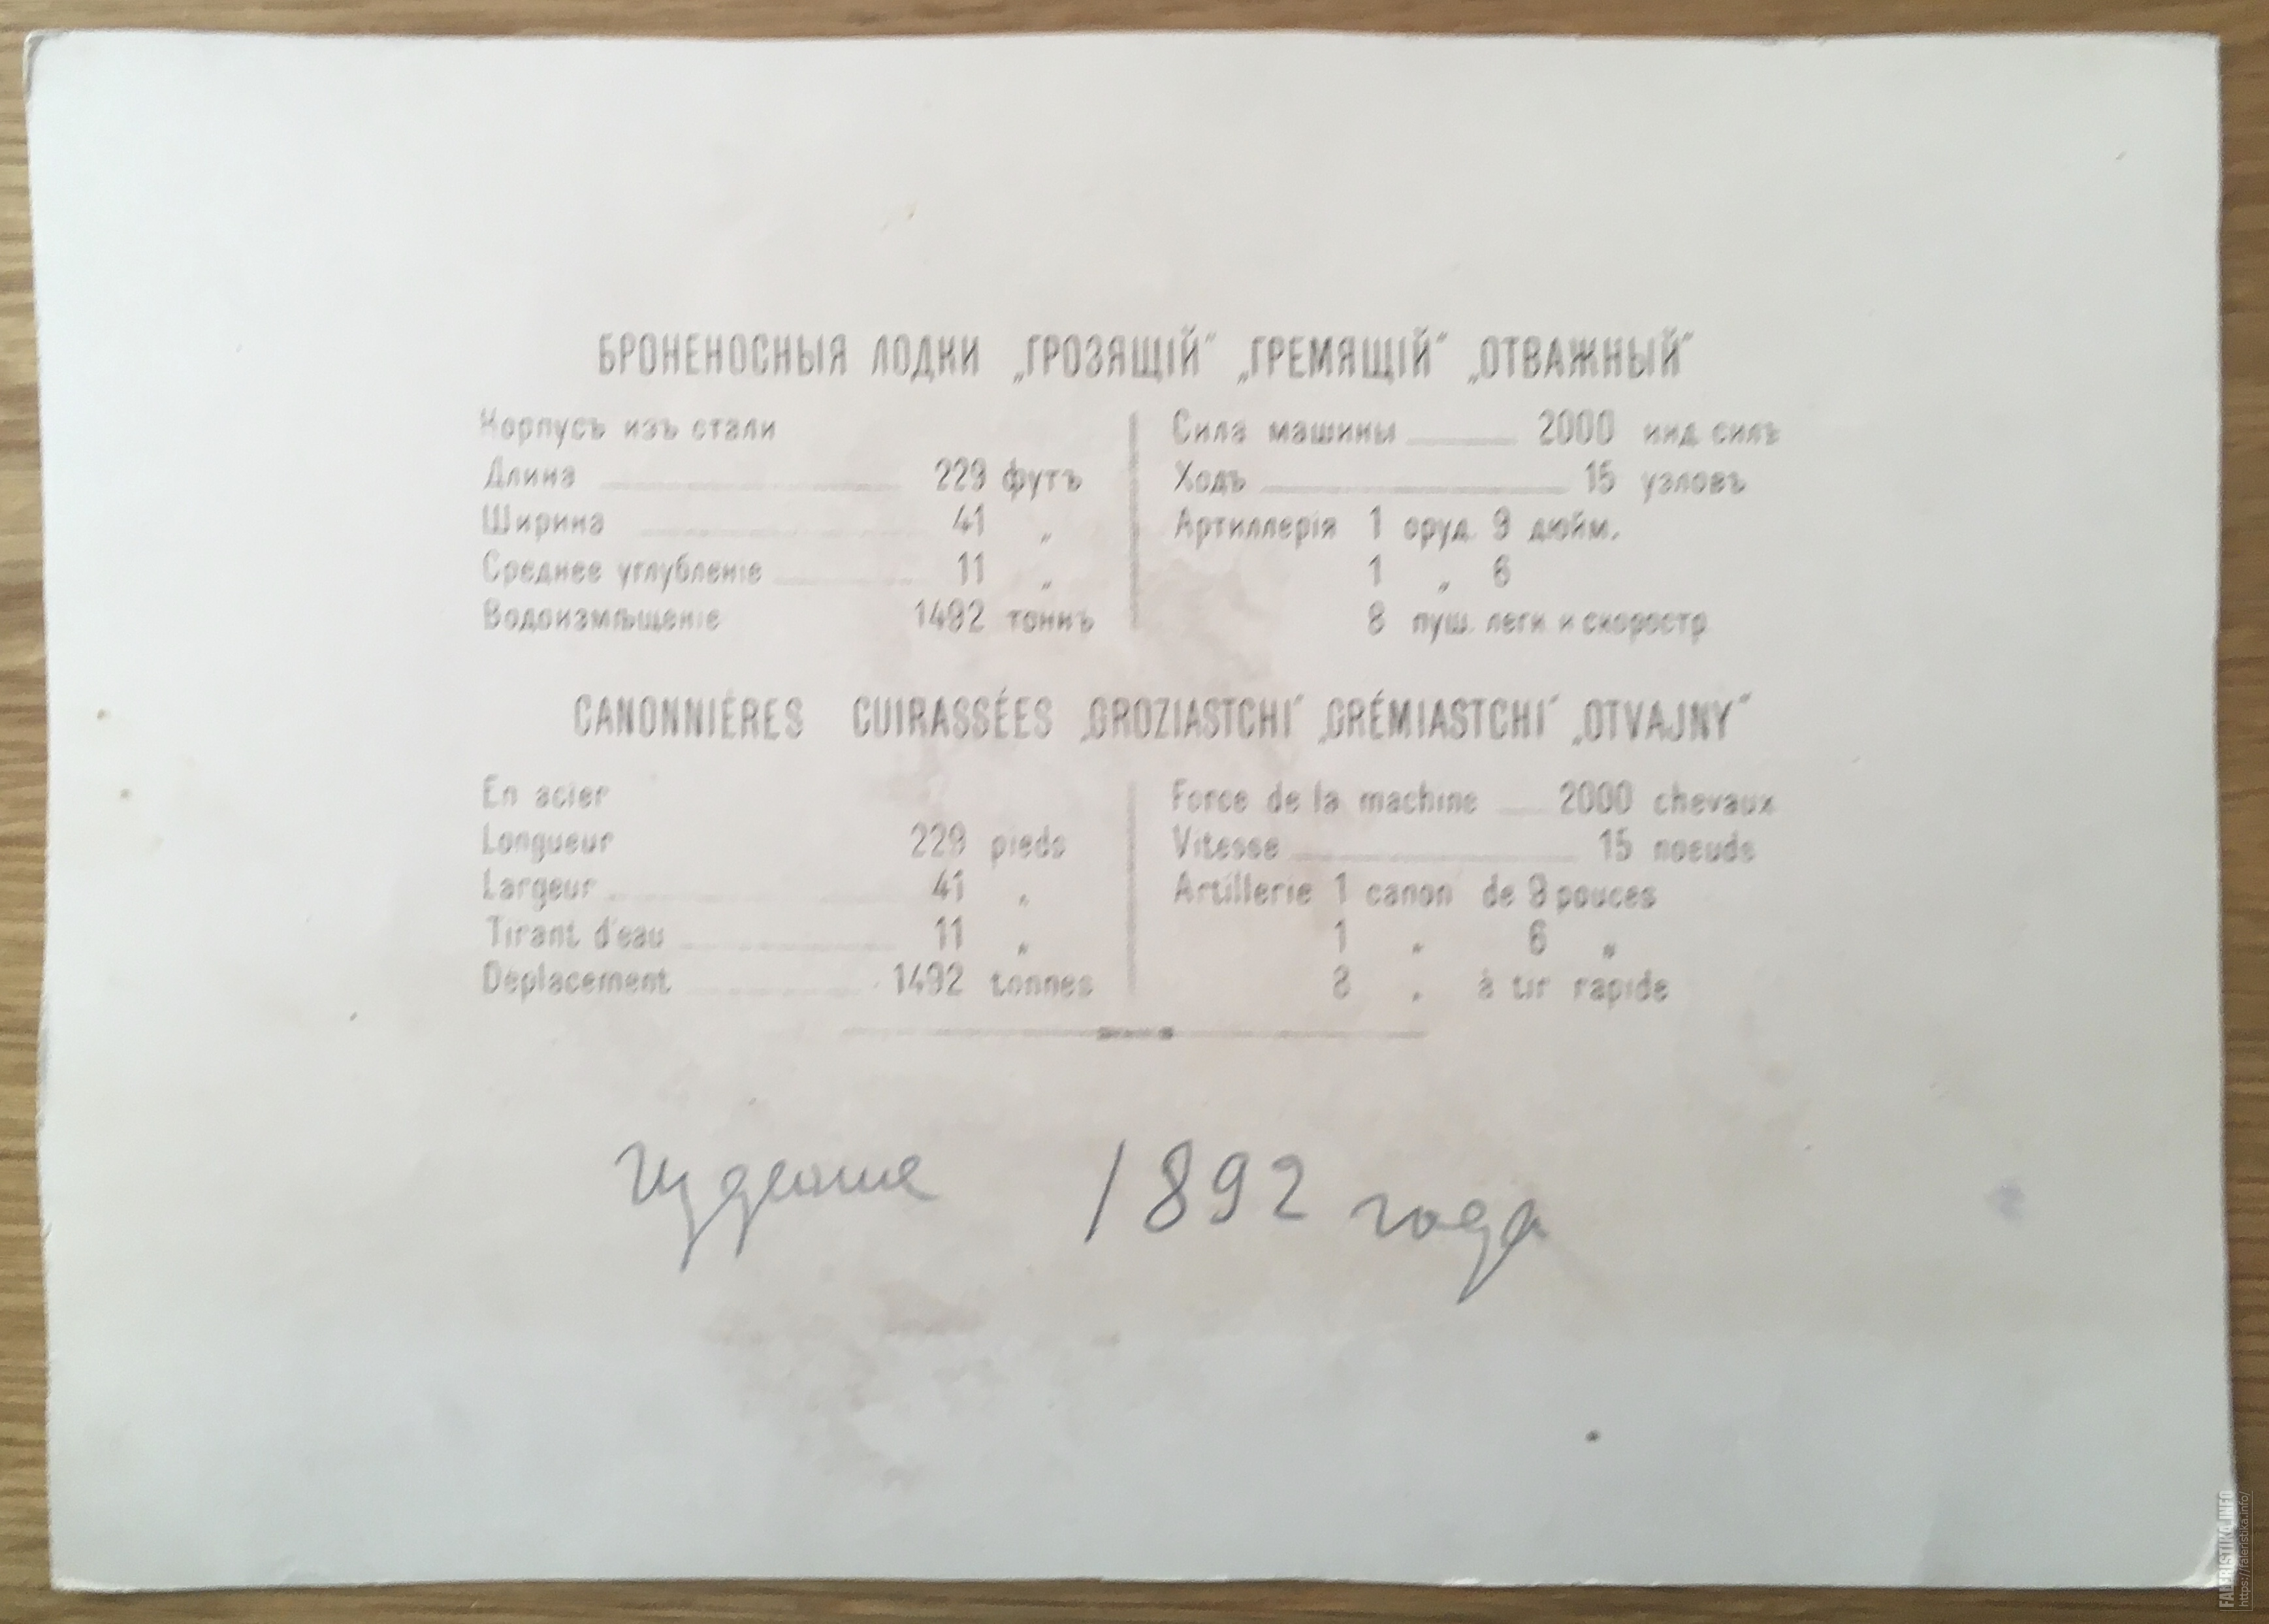 БРОНЕНОСНЫЯ ЛОДКИ „ГРОЗЯЩІЙ“ „ГРЕМЯЩІЙ“ „ОТВАЖНЫЙ“
Корпусъ изъ стали
Длина 229 футъ
Ширина 41 „
Среднее углубленіе 11 „
Водоизмѣщеніе 1492 тоннъ
Сила машины 2000 инд. силъ
Ходъ 15 узловъ
Артиллерія 1 оруд. 9 дюйм.
1 „ 6
8 пуш. легк и скоростр
CANONNIÈRES CUIRASSÉES „GROZIASTCHI“ „GRÉMIASTCHI“ „OTVAJNY“
En acier
Longueur 229 pieds
Largeur 41 „
Tirant d'eau 11 „
Déplacement 1492 tonnes
Force de la machine 2000 chevaux
Vitesse 15 noeuds
Artillerie 1 canon de 9 pouces
1 „ 6 „
8 „ à tir rapide
издание 1892 года
FALERISTIKA.INFO
https://faleristika.info/